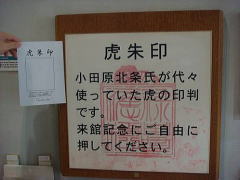 虎朱印
虎朱印
小田原北条氏が代々
使っていた虎の印判
です。
来館記念にご自由に
押してください。